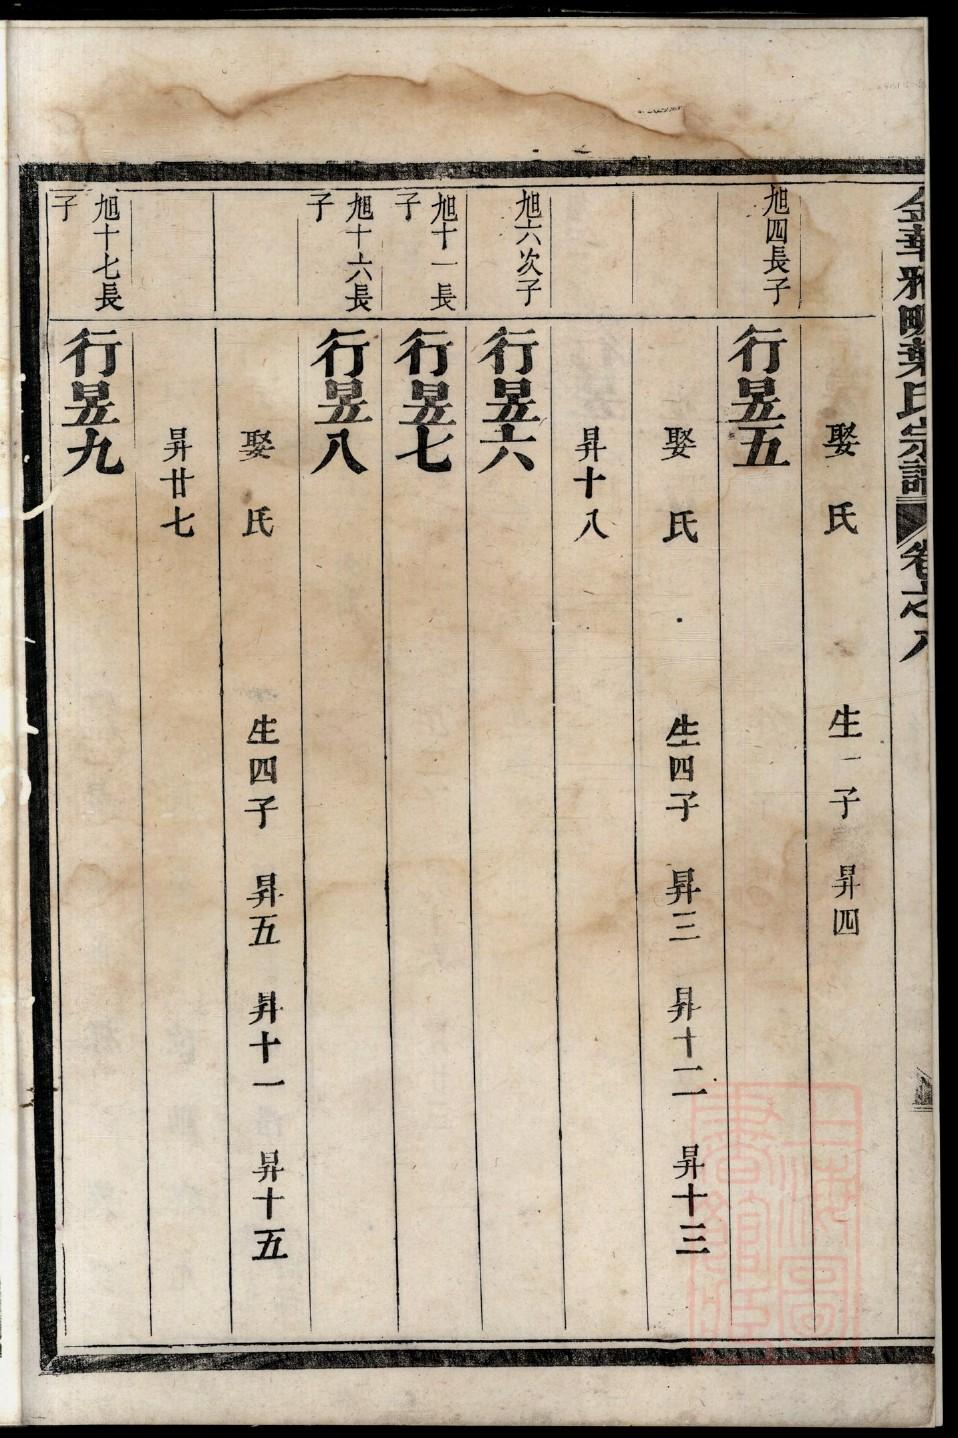 金華雅畈葉氏宗譜 卷之八
娶氏 生一子 昇四
旭四長子
行昱五
娶氏 生四子 昇三 昇十二 昇十三
昇十八
旭六次子
行昱六
旭十一長子
行昱七
旭十六長子
行昱八
娶氏 生四子 昇五 昇十一 昇十五
昇廿七
旭十七長子
行昱九
上海圖書館藏